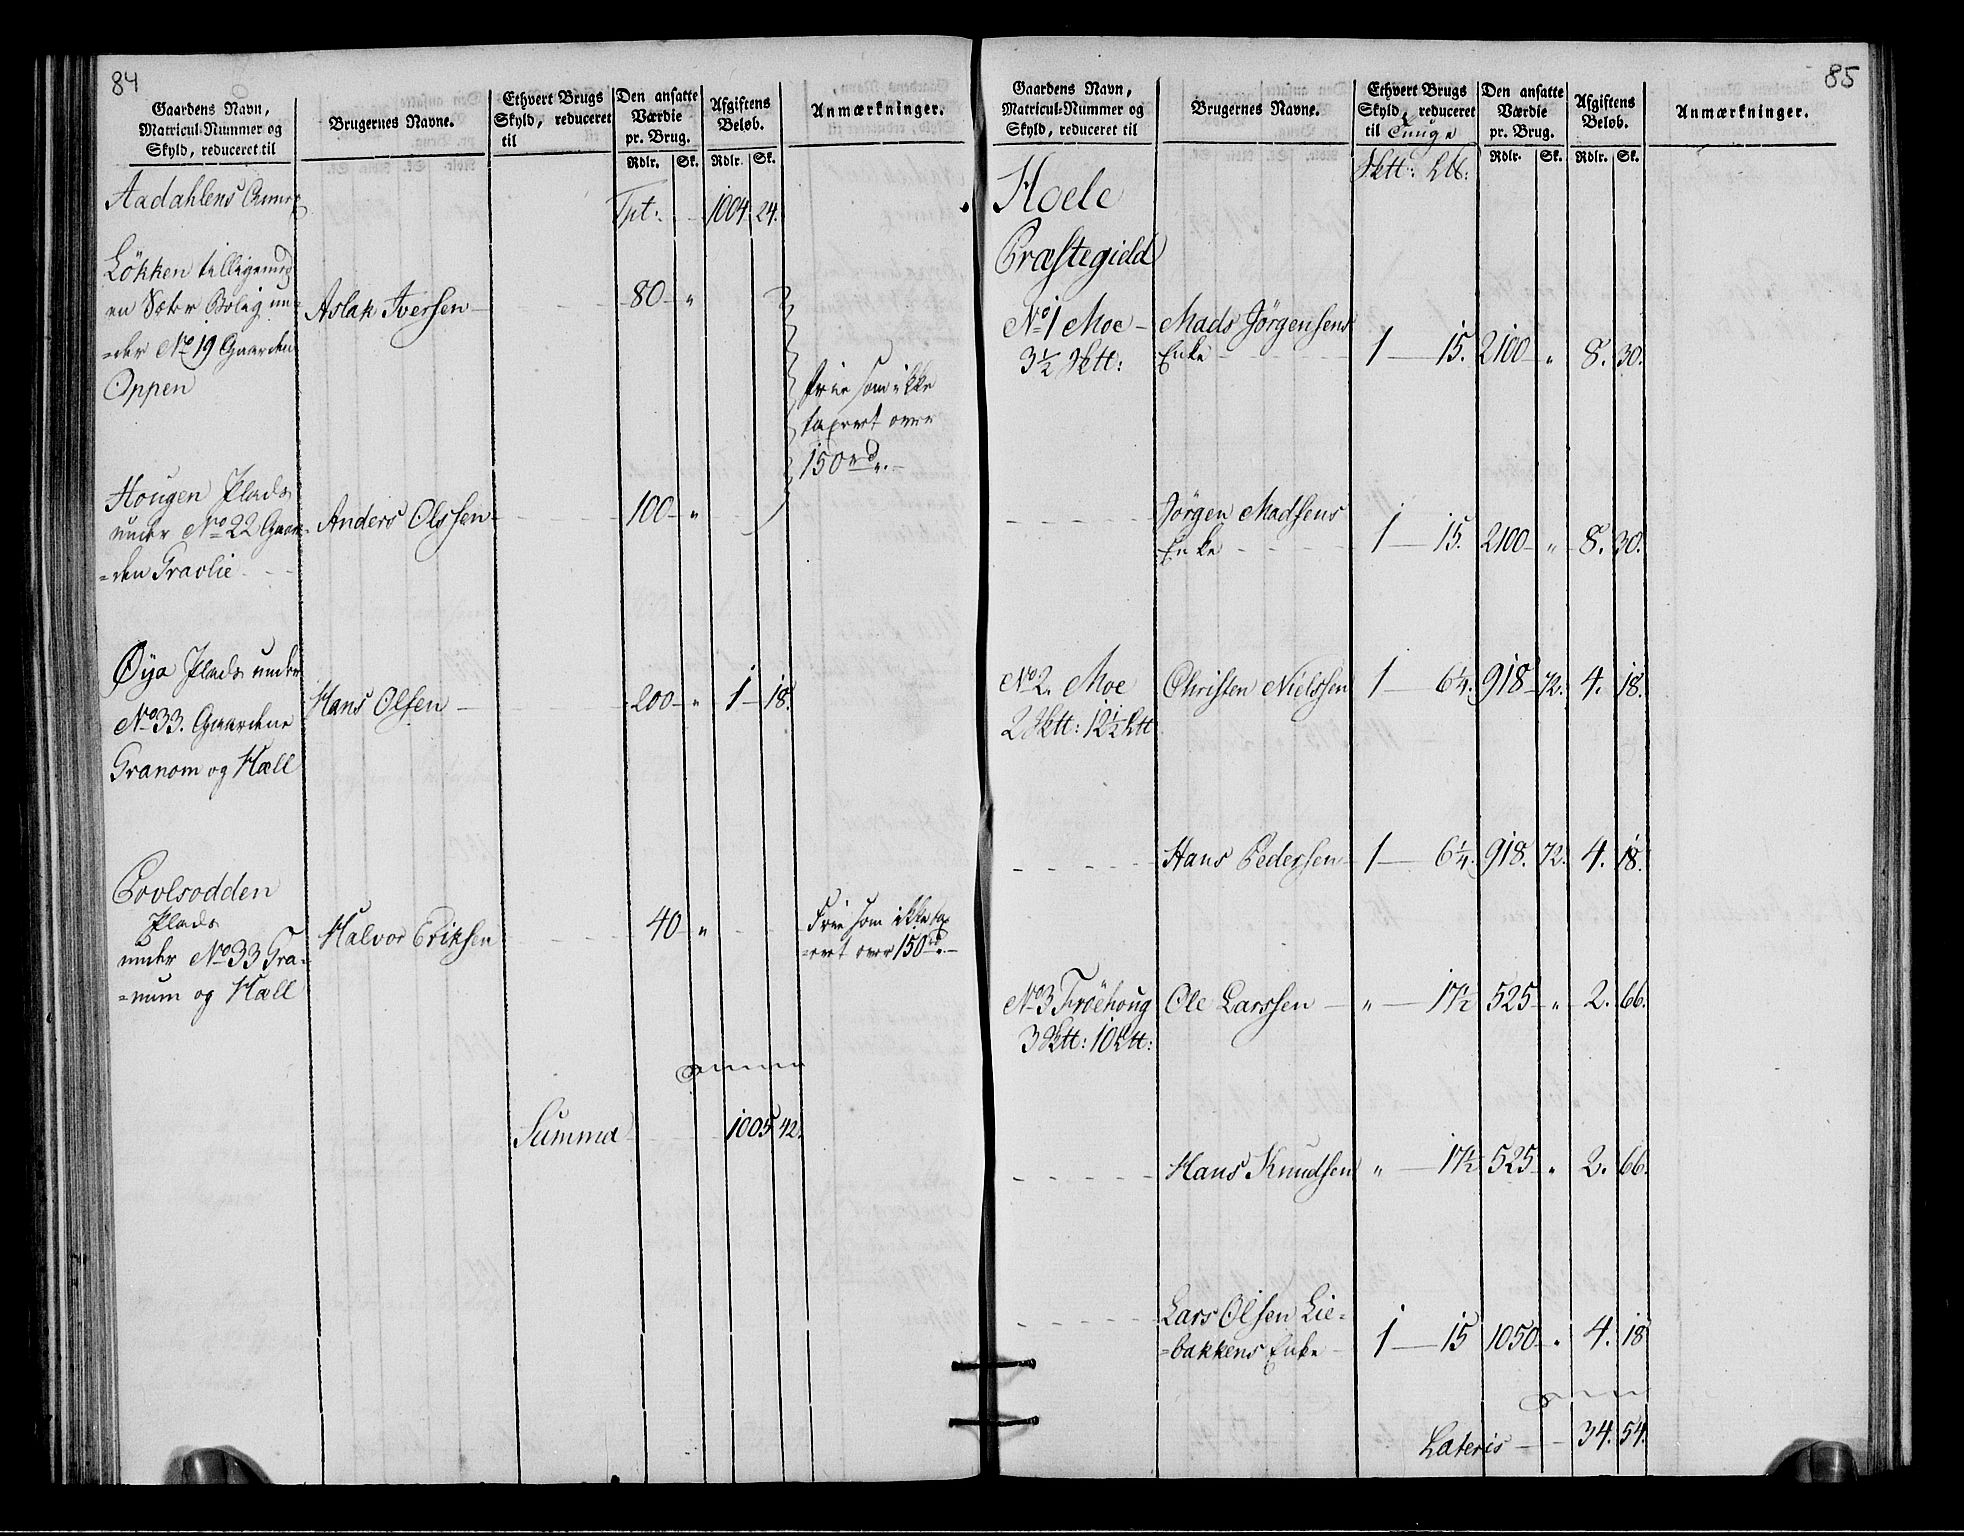 84
Gaardens Navn,
Matricul-Nummer og
Skyld, reduceret til
Brugernes Navne.
Ethvert Brugs
Skyld, reduceret
til
Den ansatte
Værdie
pr. Brug.
Rdlr. Sk.
Afgiftens
Beløb.
Rdlr. Sk.
Anmærkninger.
Aadahlens Annex Tpt: 1004. 24.
Løkken tilligemed
en Sæter Bolig un-
=der No 19 Gaarden
Oppen
Aslak Iversen 80 "
frie som ikke
taxeret over
150 rd.
Hougen Plads
under No 22 Gaar-
=den Gravlie
Anders Olssen 100 "
Øya Plads under
No 33. Gaardene
Granom og Hæll
Hans Olsen 200 " 1 18.
Povlsodden
Plads
under No 33 Gra-
=num og Hæll
Halvor Eriksen 40 "
Frie som ikke tax
=eret over 150 rd.
Summa 1005 42.
85
Gaardens Navn,
Matricul-Nummer og
Skyld, reduceret til
Brugernes Navne.
Ethvert Brugs
Skyld, reduceret
til Tunge
Sktt: Ltt:
Den ansatte
Værdie
pr. Brug.
Rdlr. Sk.
Afgiftens
Beløb.
Rdlr. Sk.
Anmærkninger.
Hoele
Præstegield
No 1 Moe
3½ Sktt:
Mads Jörgensens
Enke 1 15. 2100 " 8. 30.
Jörgen Madsens
Enke 1 15. 2100 " 8. 30.
No 2. Moe
2 Sktt: 12½ Ltt
Christen Nielssen 1 6¼. 918 72. 4. 18.
Hans Pedersen 1 6¼. 918. 72. 4. 18.
No 3 Fröehoug
3 Sktt: 10 Ltt:
Ole Larssen " 17½ 525 " 2. 66.
Hans Knudsen " 17½ 525 " 2. 66.
Lars Olsen Lie-
=bakkens Enke 1 15 1050 " 4. 18
Lateris 34. 54.